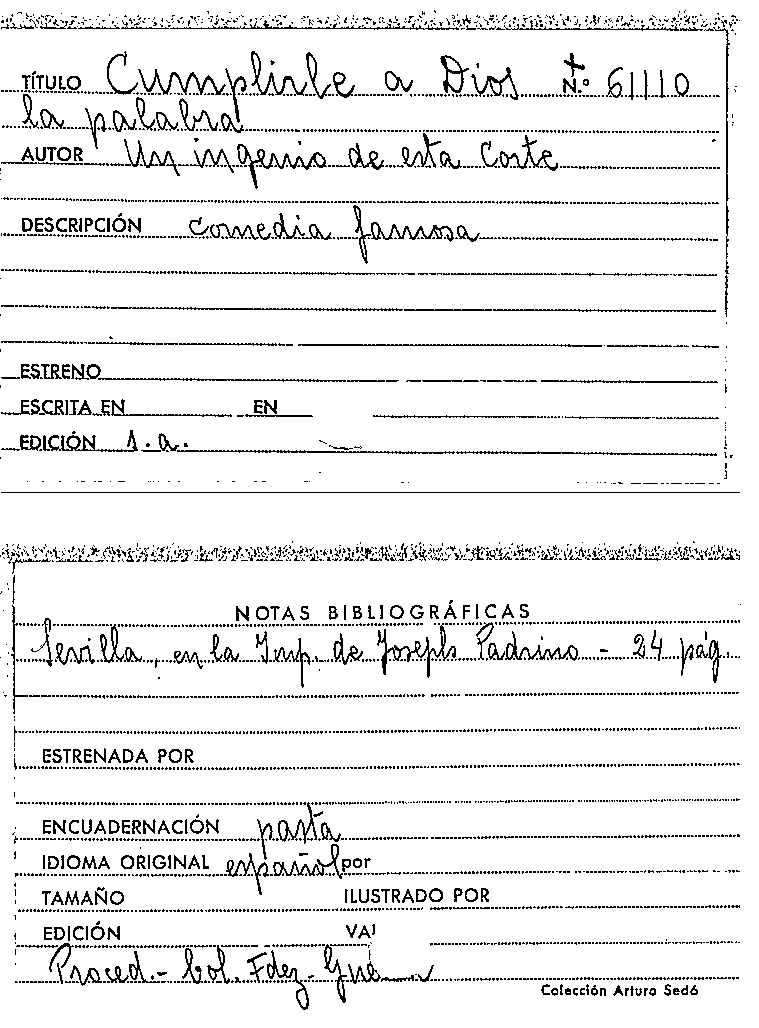 TÍTULO Cumplirle a Dios N.º 61110
la palabra
AUTOR Un ingenio de esta Corte
DESCRIPCIÓN Comedia famosa
ESTRENO
ESCRITA EN EN
EDICIÓN s.a.
NOTAS BIBLIOGRÁFICAS
Sevilla, en la Imp. de Joseph Padrino - 24 pág.
ESTRENADA POR
ENCUADERNACIÓN pasta
IDIOMA ORIGINAL español por
TAMAÑO ILUSTRADO POR
EDICIÓN VAI
Proced.- Col. Fdez-
Colección Arturo Sedó